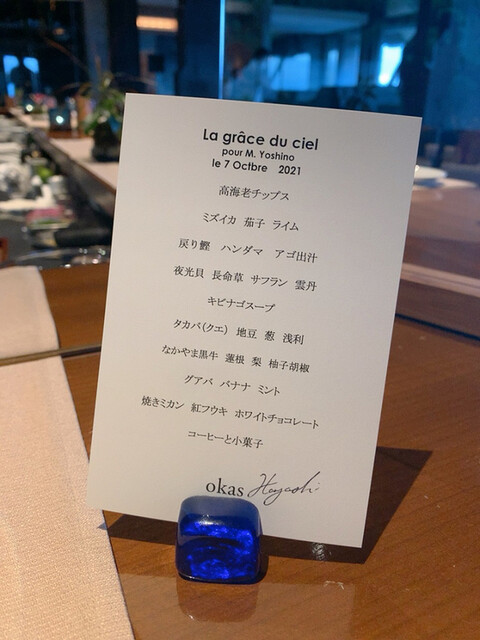 La grâce du ciel
pour M. Yoshino
le 7 Octbre 2021
高海老チップス
ミズイカ 茄子 ライム
戻り鰹 ハンダマ アゴ出汁
夜光貝 長命草 サフラン 雲丹
キビナゴスープ
タカバ(クエ) 地豆 葱 浅利
なかやま黒牛 蓮根 梨 柚子胡椒
グアバ バナナ ミント
焼きミカン 紅フウキ ホワイトチョコレート
コーヒーと小菓子
okas Hayashi